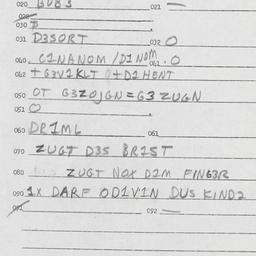 020 BUB3 021 —
030 
031 D3SORT 032 O
040. C1NANOM /D1NOM 041. O
042 +G3V1KLT 0+D1HENT
050 OT G3ZOJGN=G3ZUGN
051 O
060 DR1ML 061
070 ZUGT D3S BR1ST
080 ZUGT NOX D2M FING3R
090 1X DARF OD1V1N DUS KIND2
091 092 —